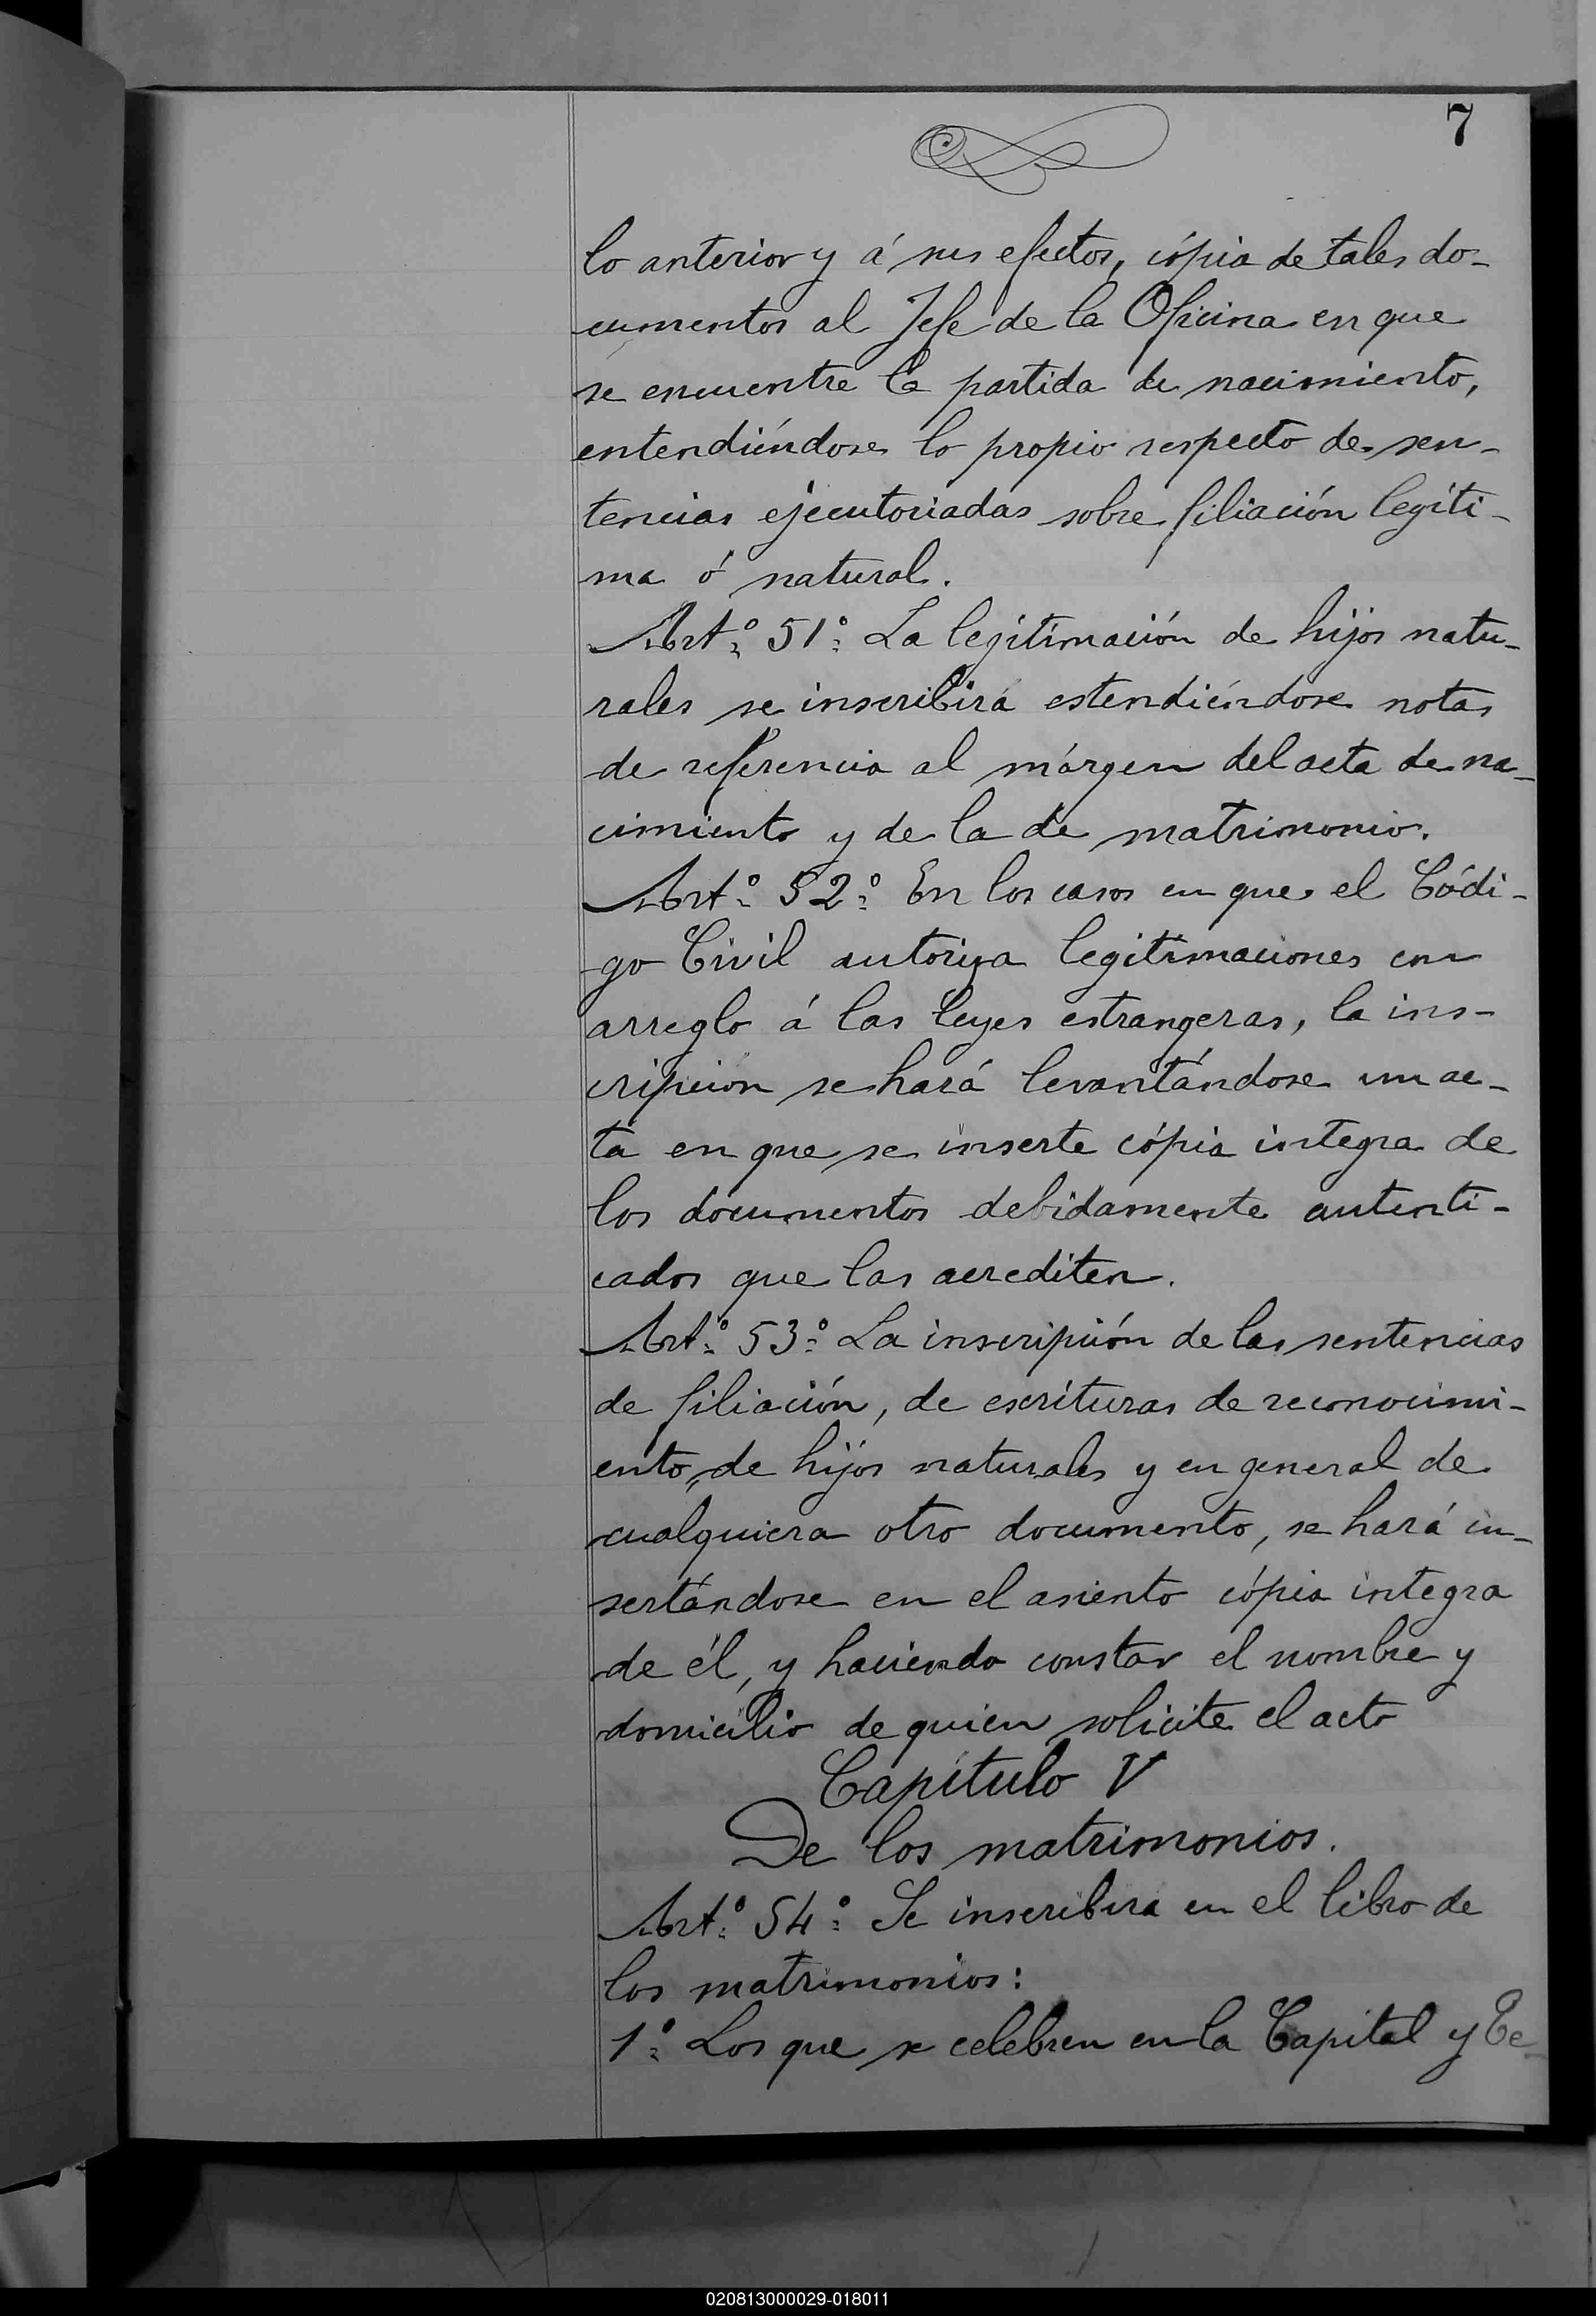 7
lo anterior y á sus efectos, cópia de tales do-
cumentos al Jefe de la Oficina en que
se encuentre la partida de nacimiento,
entendiéndose lo propio respecto de sen-
tencias ejecutoriadas sobre filiación legíti-
ma ó natural.
Artº 51º La legitimación de hijos natu-
rales se inscribirá estendiéndose notas
de referencia al márgen del acta de na-
cimiento y de la de matrimonio.
Artº 52º En los casos en que el Códi-
go Civil autoriza legitimaciones con
arreglo á las leyes estrangeras, la ins-
cripcion se hará levantándose un ac-
ta en que se inserte cópia integra de
los documentos debidamente autenti-
cados que las acrediten.
Artº 53º La inscripción de las sentencias
de filiación, de escrituras de reconocimi-
ento, de hijos naturales y en general de
cualquiera otro documento, se hará in-
sertándose en el asiento cópia integra
de él, y haciendo constar el nombre y
domicilio de quien solicite el acto
Capítulo V
De los matrimonios.
Artº 54º Se inscribirá en el libro de
los matrimonios:
1º Los que se celebren en la Capital y Te-
020813000029-018011